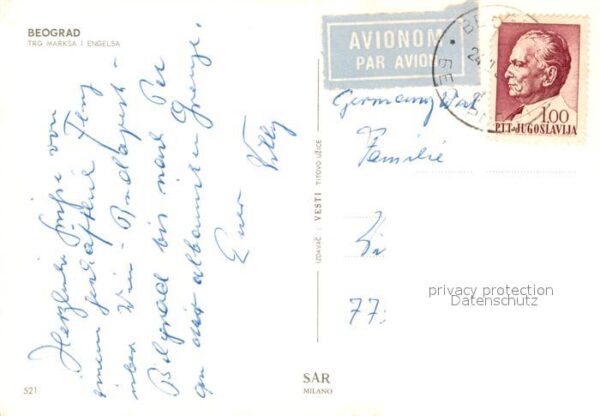 BEOGRAD
TRG MARKSA I ENGELSA
Herzliche Grüße von
einem geschäftlichen Flug
über Wien - Budapest -
Belgrad bis nach Pec
an der albanischen Grenze.
Euer Willy
521
IZDAVAČ: VESTI TITOVO UŽICE
SAR
MILANO
AVIONOM
PAR AVION
BEOGRAD
1.00
PTT-JUGOSLAVIJA
Germany West
Familie
77
privacy protection
Datenschutz